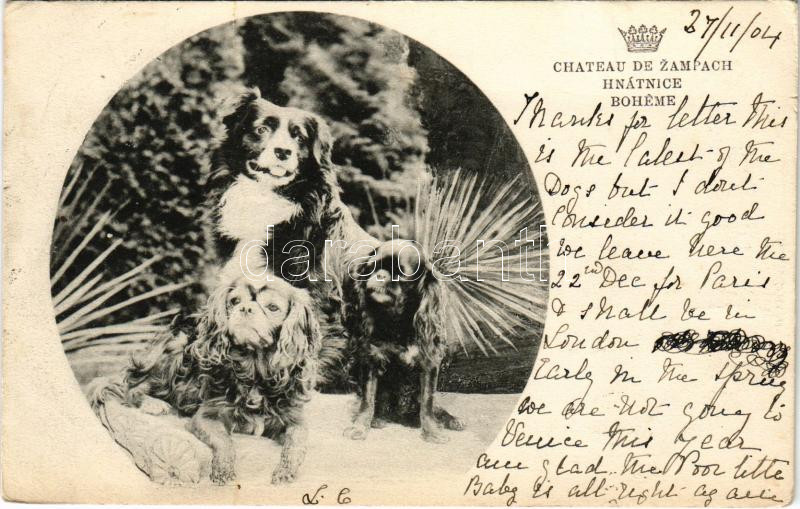 27/11/04
CHATEAU DE ŽAMPACH
HNÁTNICE
BOHÊME
Thanks for letter this
is the latest of the
Dogs but I dont
Consider it good
we leave here the
22nd Dec for Paris
& shall be in
London
Early in the spring
we are not going to
Venice this year
am glad the Poor little
Baby is all right again
L. C
darabanth